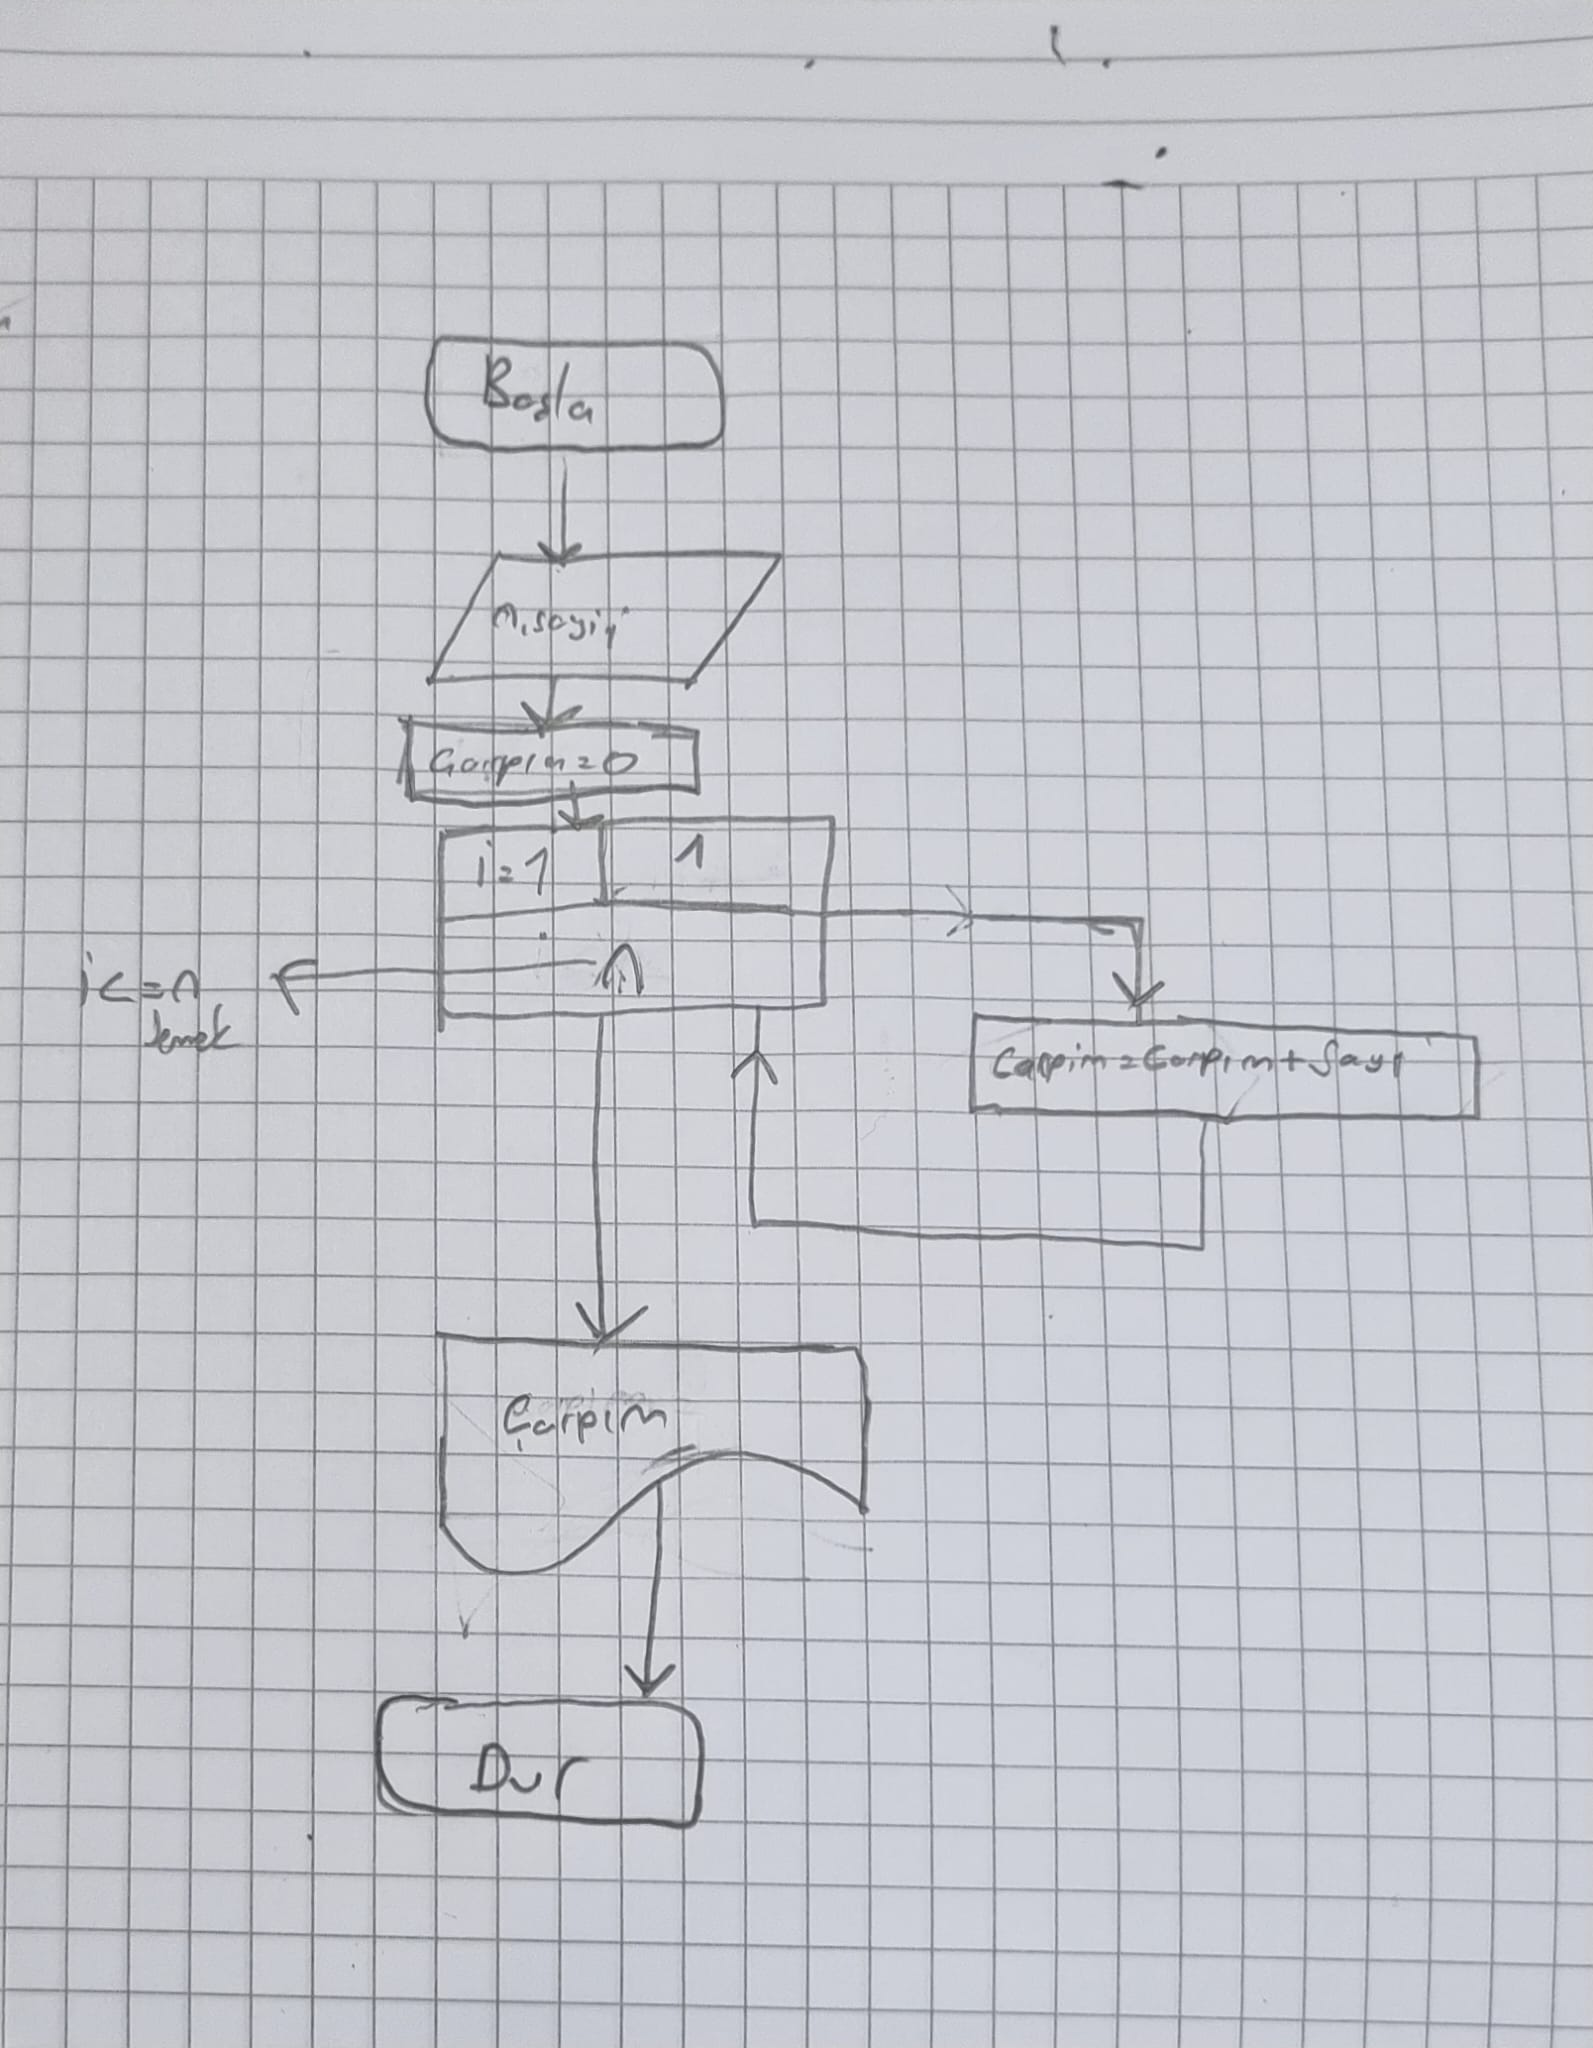 Başla
n, sayi, i
Carpım=0
i=1
1
n
i<=n
demek
Carpim=Carpım+Sayı
Çarpım
Dur